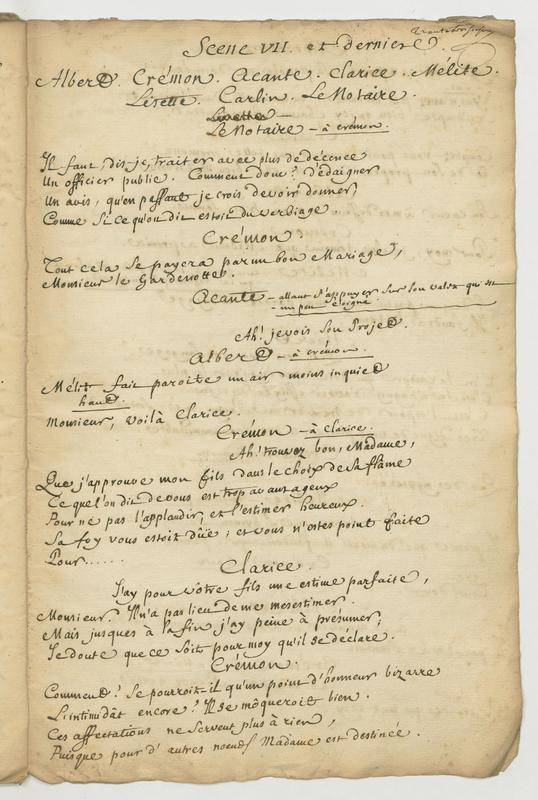 Scene VII. et derniere.
Albert. Crémon. Acante. Clarice. Mélite.
Lisette. Carlin. Le Notaire.
Lisette
Le Notaire - à crémon.
Il faut, dis-je, traiter avec plus de décence
Un officier public. Comment donc? Dédaigner
Un avis, qu'en passant je crois devoir donner;
Comme si ce qu'on dit estoit du verbiage.
Crémon.
Tout cela se payera par un bon Mariage,
Monsieur le Gardenotte.
Acante - allant s'appuyer sur son valet qui est
- un peu éloigné.
Ah! je vois son Projet.
Albert - à crémon.
Mélite fait paroitre un air moins inquiet
haut.
Monsieur, voilà Clarice.
Crémon - à Clarice.
Ah! trouvez bon, Madame,
Que j'approuve mon fils dans le choix de sa flâme
Ce que l'on dit de vous est trop avantageux
Pour ne pas l'applaudir, et l'estimer heureux.
Sa foy vous estoit düe; et vous n'estes point faite
Pour......
Clarice.
J'ay pour vôtre fils une estime parfaite,
Monsieur. Il n'a pas lieu de me mesestimer.
Mais jusques à la fin j'ay peine à présumer;
Je doute que ce soit pour moy qu'il se déclare.
Crémon.
Comment? Se pourroit-il qu'un point d'honneur bizarre
L'intimidât encore? Il se môqueroit bien.
Ces affectations ne servent plus à rien,
Puisque pour d'autres noeuds Madame est destinée.